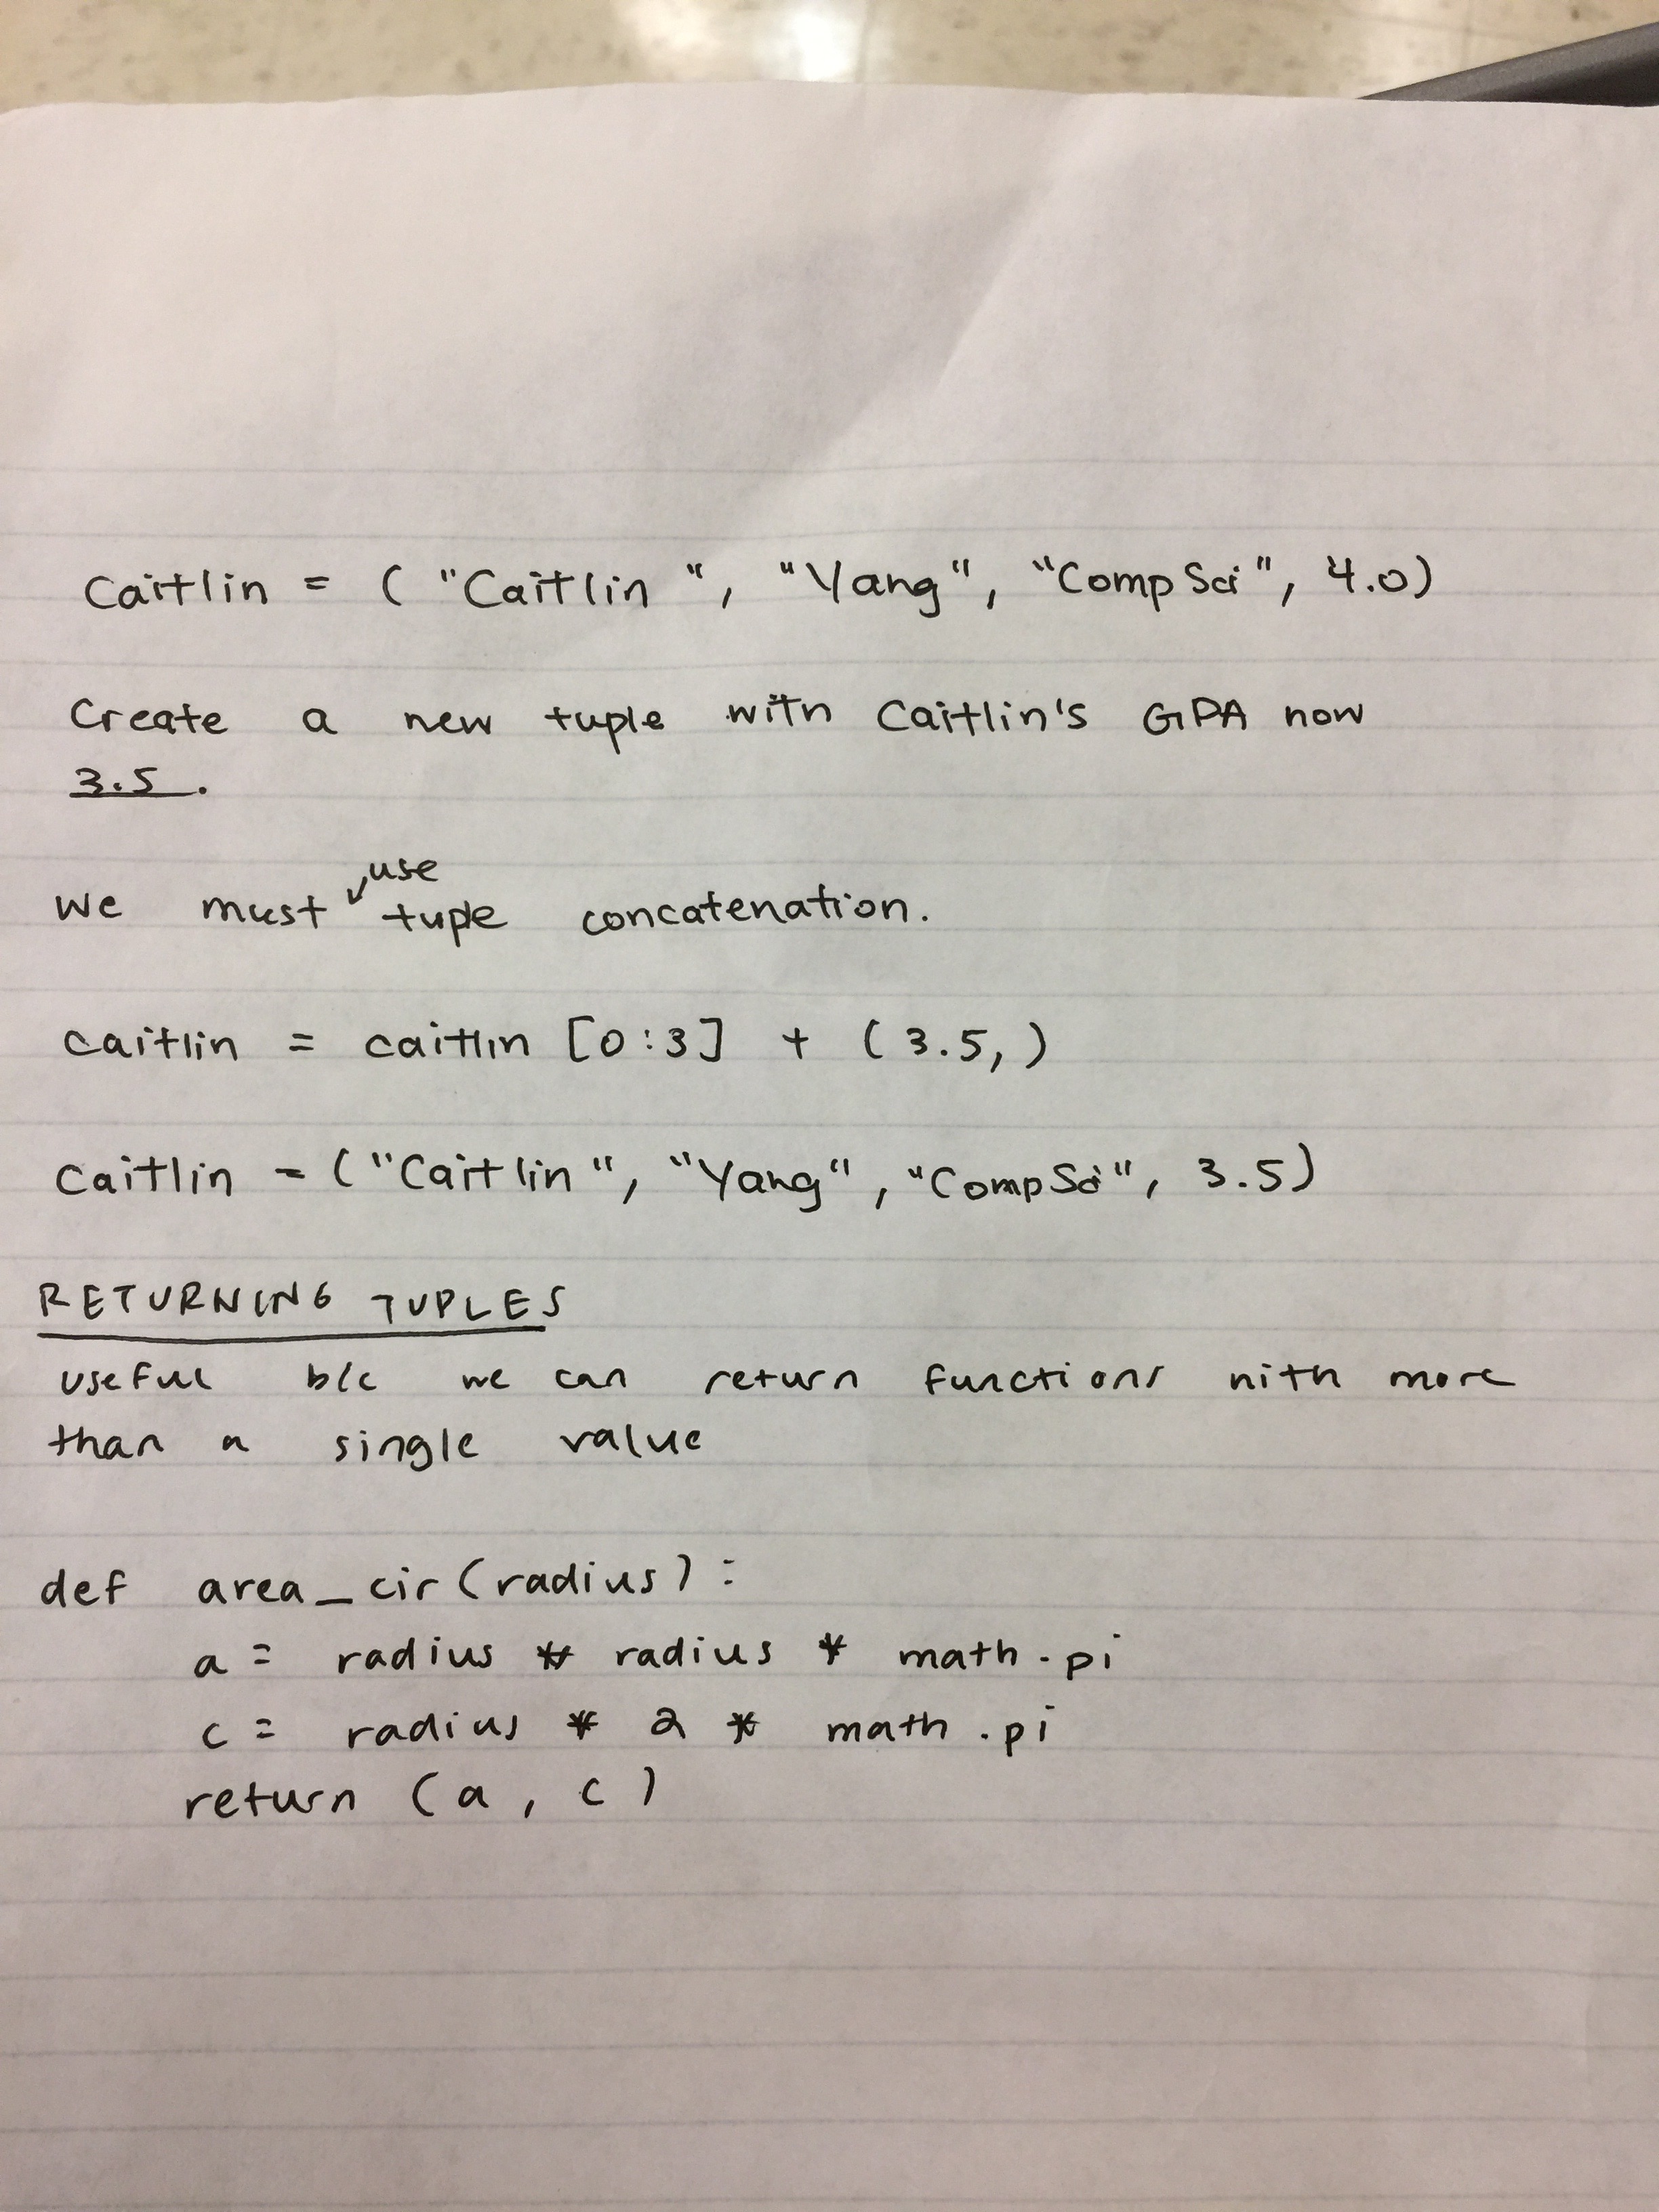 Caitlin = ( "Caitlin ", "Yang", "CompSci", 4.0)
Create a new tuple with Caitlin's GPA now
3.5.
use
we must tuple concatenation.
caitlin = caitlin [0:3] + (3.5,)
Caitlin = ("Caitlin", "Yang", "CompSci", 3.5)
RETURNING TUPLES
useful b/c we can return functions with more
than a single value
def area_cir(radius):
a = radius * radius * math.pi
c = radius * 2 * math.pi
return (a, c)